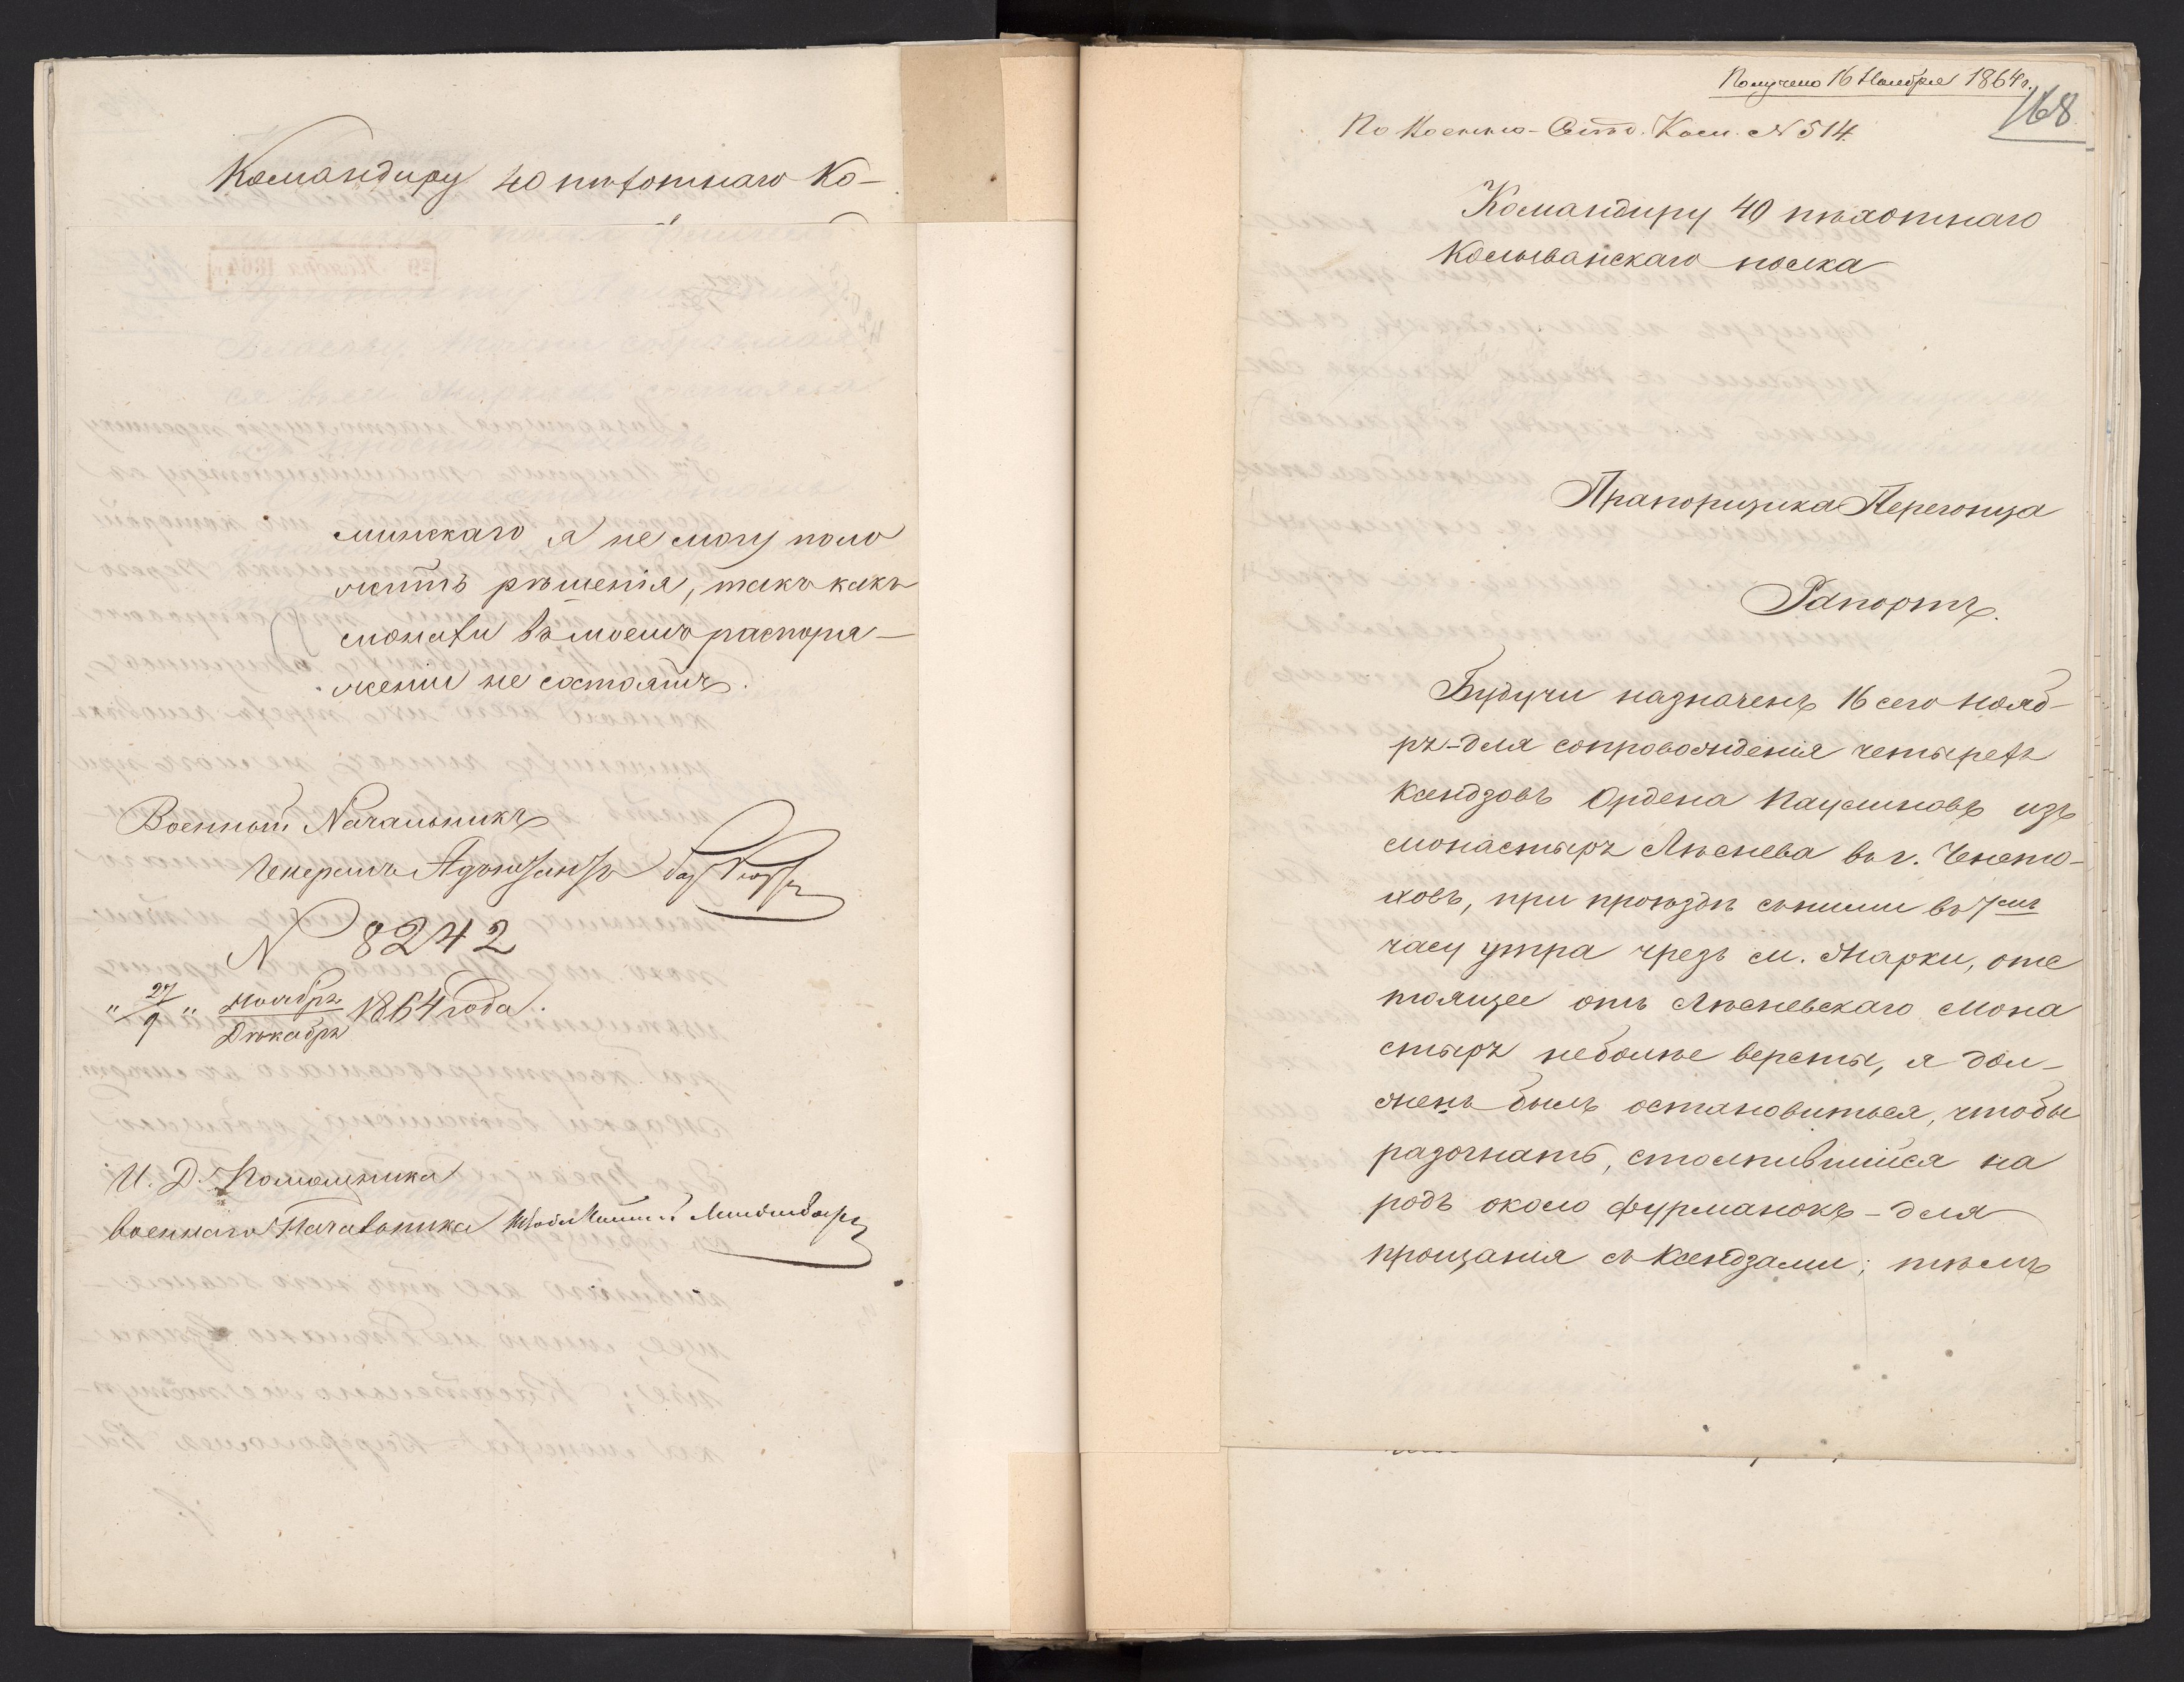 Командиру 40 пѣхотнаго Ко-
минскаго я не могу поло
жить рѣшенія, такъ какъ
монахи въ моемъ распоря-
женіи не состоятъ.
Военный Начальникъ
Генералъ Адъютантъ
N 8242
"27/9" Ноября/Декабря 1864 года.
И. Д. Помощника
Военнаго Начальника
Получено 16 Ноября 1864 г.
168
По Военно- Слѣд. Ком. N 514.
Командиру 40 пѣхотнаго
Колыванскаго полка
Прапорщика Перегонца
Рапортъ.
Будучи назначенъ 16 сего Нояб-
ря-для сопровожденія четырехъ
Ксендзовъ Ордена Паулиновъ изъ
монастыря Лѣснева въ г. Ченсто-
ховъ, при проѣздѣ съ ними въ 7мъ
часу утра чрезъ м. Жарки, отс
тоящее отъ Лѣсневскаго Мона
стыря неболѣе версты, я дол-
женъ былъ остановиться, чтобы
разогнать, столпившійся на
родъ около фурманокъ-для
прощанія съ Ксендзами; тѣмъ